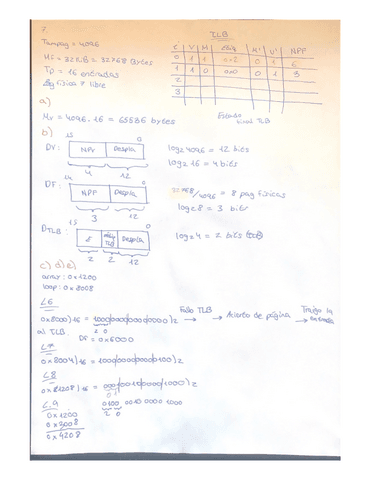 7.
Tampag = 4096
MF = 32KB = 32768 Bytes
TP = 16 entradas
Pag física 7 libre
TLB
C V M etiq M' V' NPF
0 1 1 0 1 6
1 1 0 0 1 3
2
3
Estado
final TLB
a)
Mv = 4096 · 16 = 65536 bytes
b)
15 0
DV: NPV Despla
4 12
log2 4096 = 12 bits
log2 16 = 4 bits
0
DF: NPF Despla
3 12
32768/4096 = 8 pag físicas
log2 8 = 3 bits
15 0
DTLB: Despla
2 2 12
log2 4 = 2 bits
c) d) e)
array: 0x1200
loop: 0x8008
L6
0x8000)16 = 1000|0000|0000|0000)2 → Fallo TLB → Acierto de página → Traigo la entrada
2 0
al TLB. DF = 0x6000
L7
0x8004)16 = 1000|0000|0000|0100)2
L8
L9
0100 0010 0000 1000
2 0
0x1200
0x3008
0x4208